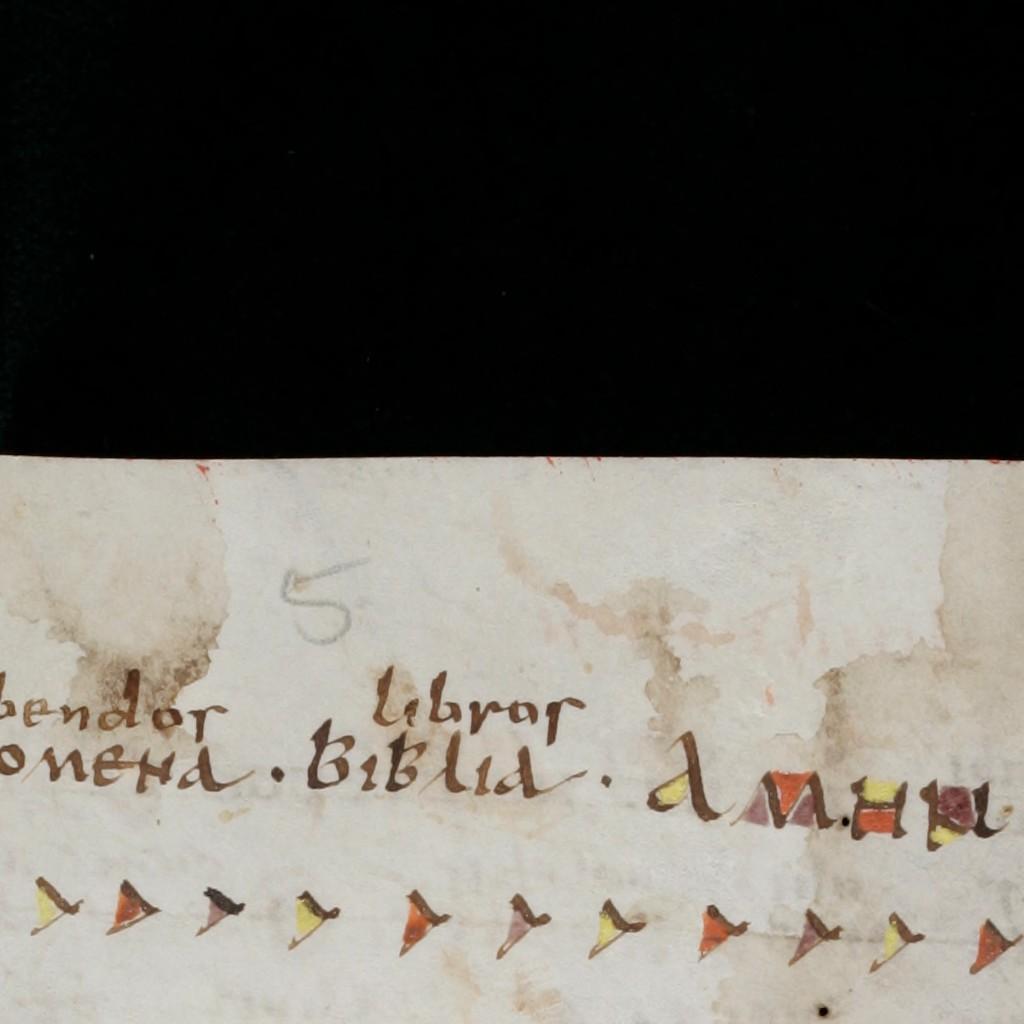 5
bendos libros
omena . Biblia . AMHN